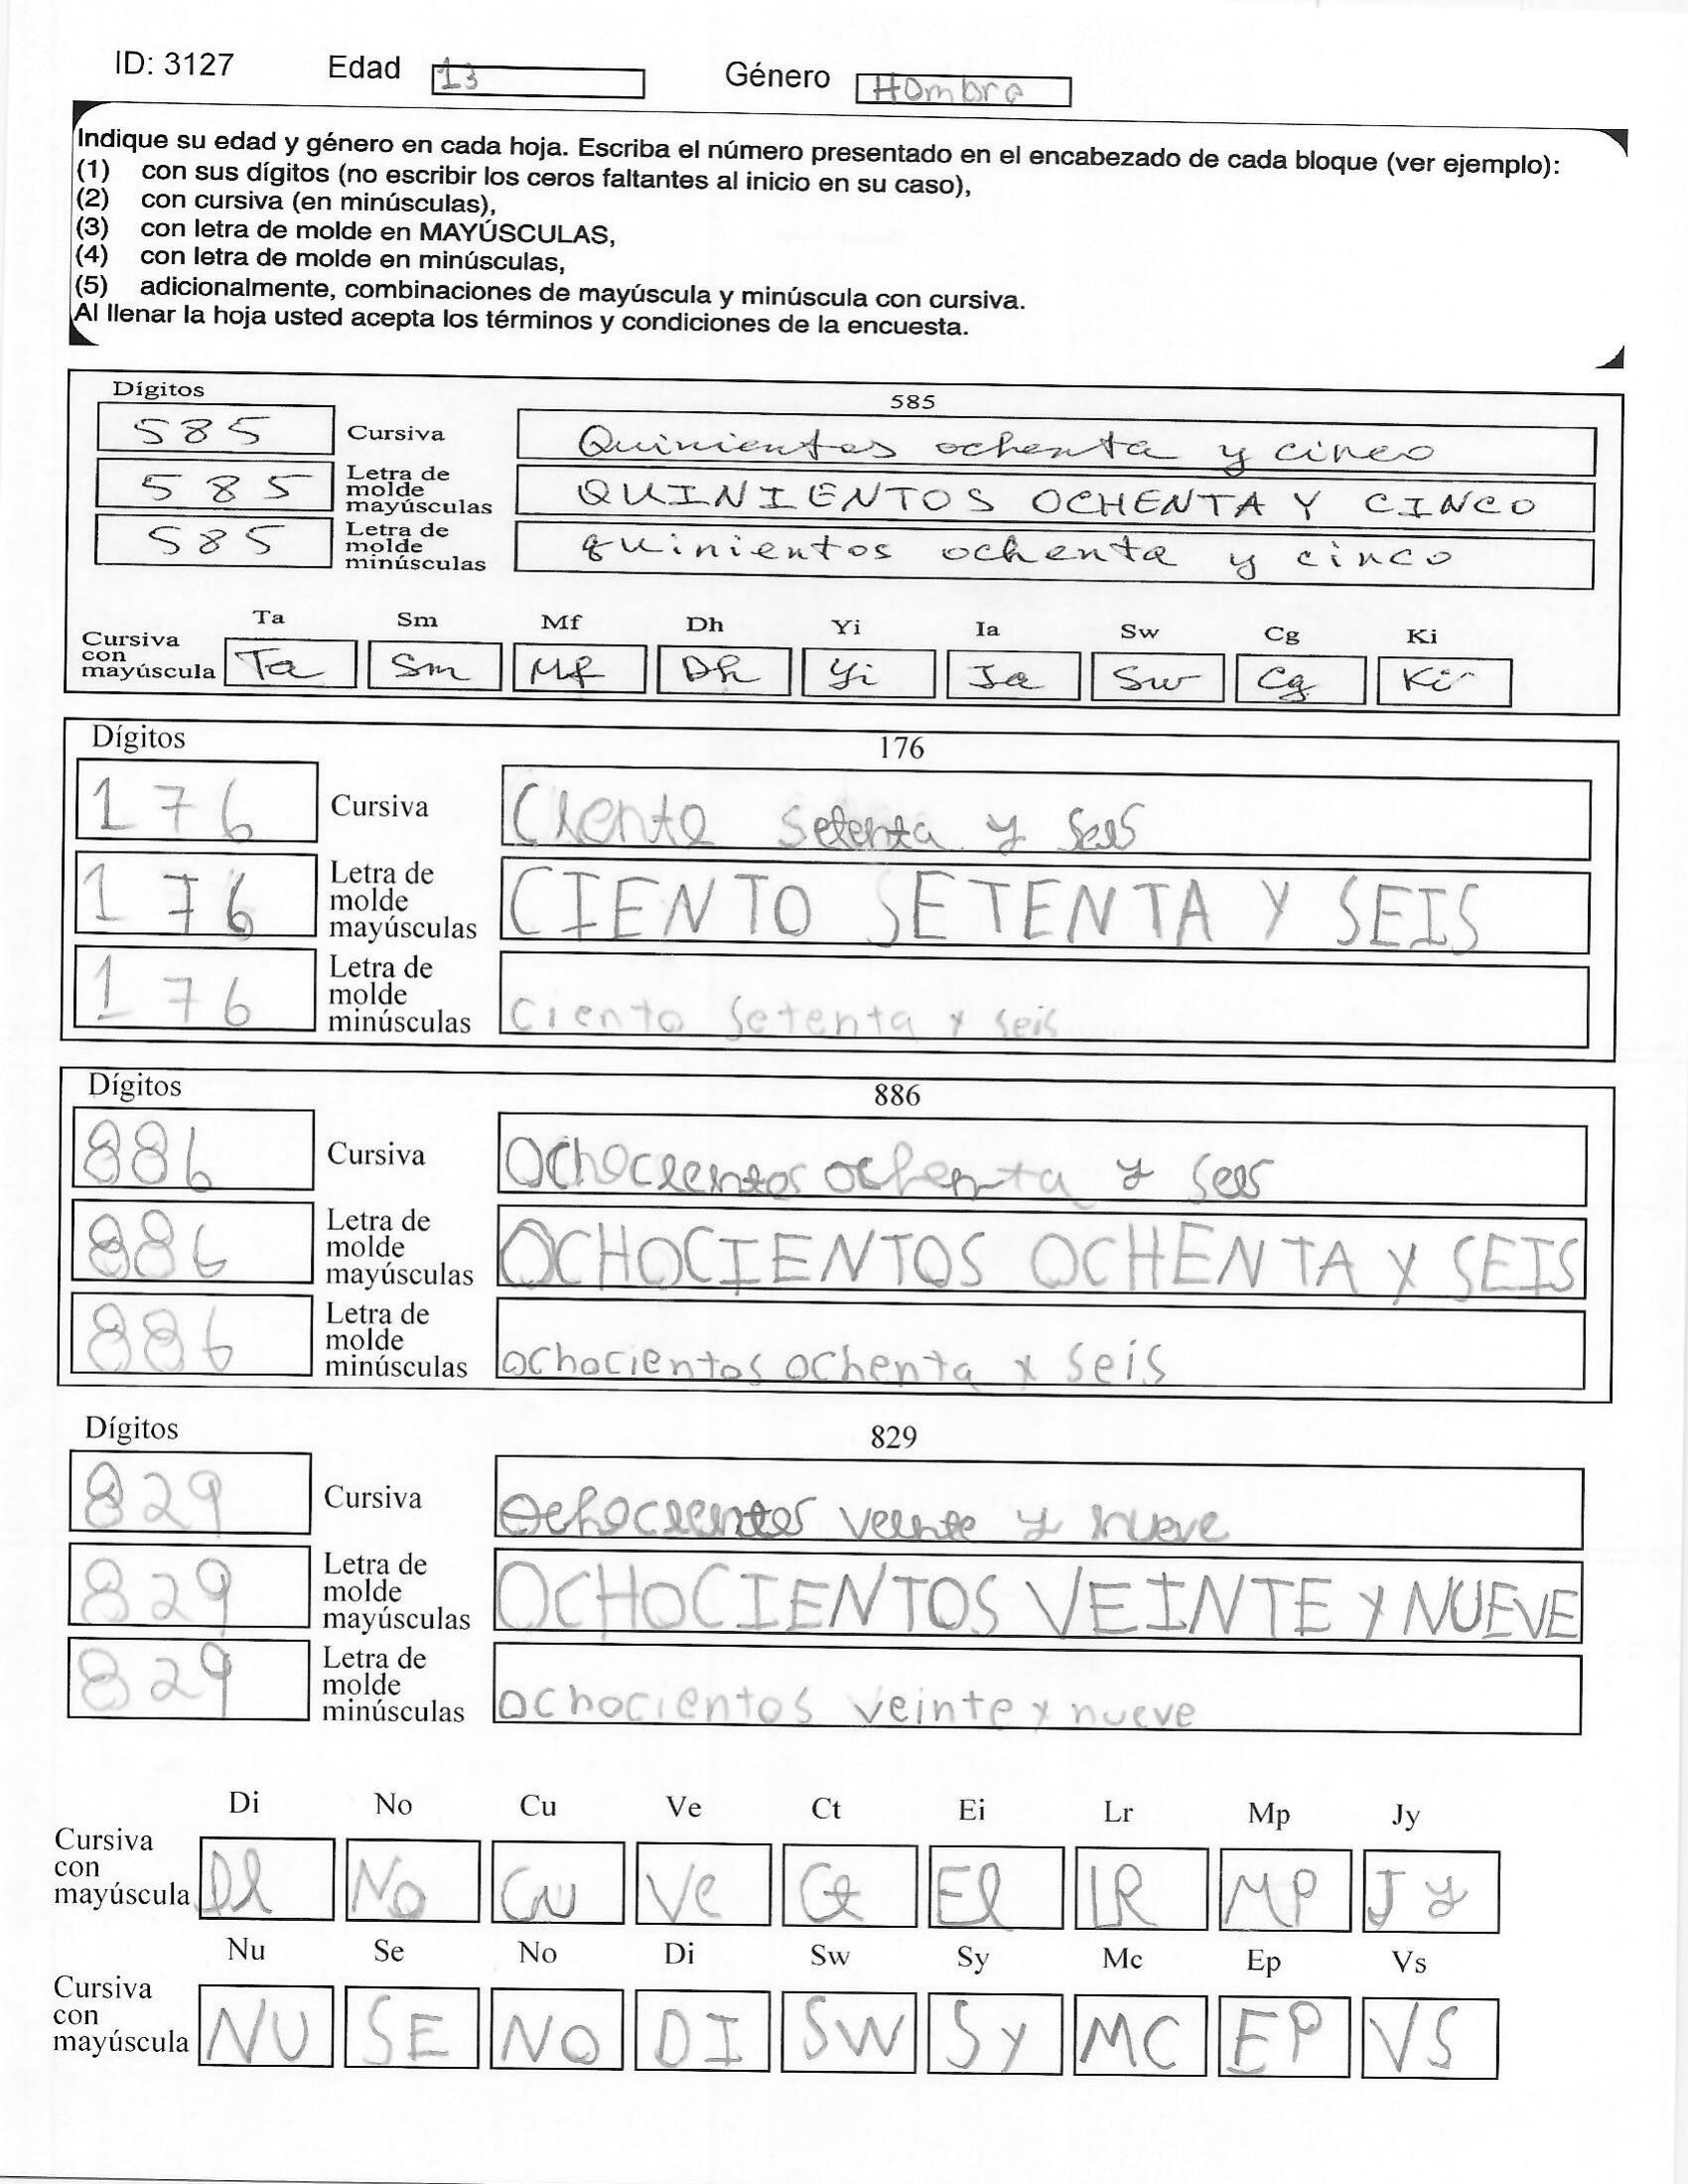 ID: 3127 Edad 13 Género Hombre
Indique su edad y género en cada hoja. Escriba el número presentado en el encabezado de cada bloque (ver ejemplo):
(1) con sus dígitos (no escribir los ceros faltantes al inicio en su caso),
(2) con cursiva (en minúsculas),
(3) con letra de molde en MAYÚSCULAS,
(4) con letra de molde en minúsculas,
(5) adicionalmente, combinaciones de mayúscula y minúscula con cursiva.
Al llenar la hoja usted acepta los términos y condiciones de la encuesta.
Dígitos 585
585 Cursiva Quinientos ochenta y cinco
585 Letra de molde mayúsculas QUINIENTOS OCHENTA Y CINCO
585 Letra de molde minúsculas quinientos ochenta y cinco
Ta Sm Mf Dh Yi Ia Sw Cg Ki
Cursiva con mayúscula Ta Sm Mf Dh Yi Ia Sw Cg Ki
Dígitos 176
176 Cursiva Ciento setenta y seis
176 Letra de molde mayúsculas CIENTO SETENTA Y SEIS
176 Letra de molde minúsculas ciento setenta y seis
Dígitos 886
886 Cursiva Ochocientos ochenta y seis
886 Letra de molde mayúsculas OCHOCIENTOS OCHENTA Y SEIS
886 Letra de molde minúsculas ochocientos ochenta y seis
Dígitos 829
829 Cursiva Ochocientos veinte y nueve
829 Letra de molde mayúsculas OCHOCIENTOS VEINTE Y NUEVE
829 Letra de molde minúsculas ochocientos veinte y nueve
Di No Cu Ve Ct Ei Lr Mp Jy
Cursiva con mayúscula Di No Cu Ve Ct Ei LR MP Jy
Nu Se No Di Sw Sy Mc Ep Vs
Cursiva con mayúscula NU SE NO DI SW Sy MC EP VS